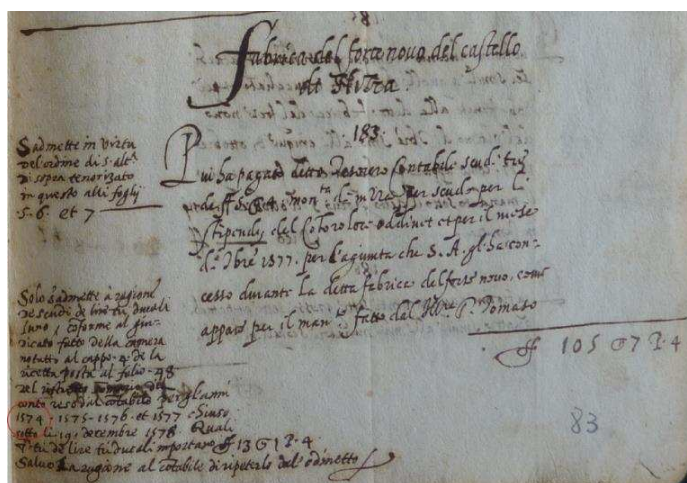 Fabrica del forte novo del castello
di Nizza
183
Piu ha pagato detto Tesoriero Contabile scudi tre
per scudo per li
stipendij del Oddinet et per il mese
1577. per l'agiunta che S. A. gl'ha con-
cesso durante la detta fabrica del forte novo, come
appare per il man fatto dal Tomato
ff 105 G 7 P. 4
S'admette in virtu
del ordine di S. Alt.
di sopra tenorizato
in questo alli foglij
5. 6. et 7
Solo s'admette à ragione
de scudi di tre ducali
l'uno, conforme al giu-
dicato fatto della camera
notatto al cappo. 4. de la
ricetta posta al folio. 48
del ristretto
conto reso dal cotabile per gl'anni
1574. 1575. 1576. et 1577 chiuso
sotto li 19. decembre 1578 Quali
di lire ducali importano ff 13 G 1 P. 4
Salvo la ragione al cotabile di ripeterlo dal odinetto
83